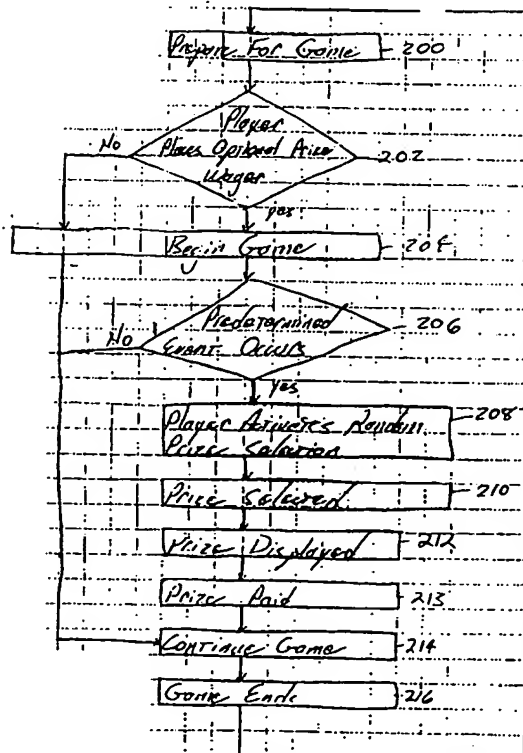 Prepare For Game
200
Player
Places Optional Prize
Wager
202
No
yes
Begin Game
204
Predetermined
Event Occurs
206
No
yes
Player Activates Random
Prize Selection
208
Prize Selected
210
Prize Displayed
212
Prize Paid
213
Continue Game
214
Game Ends
216